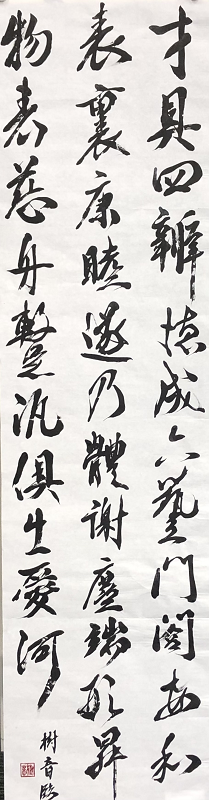 才具四辯德成六藝門閣安和
表裏康睦遂乃體謝塵端形昇
物表慈舟暫汎俱生愛河
樹音臨